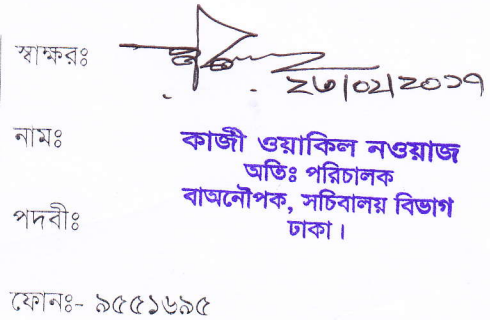 স্বাক্ষরঃ
২৬|০২|২০১৭
নামঃ
কাজী ওয়াকিল নওয়াজ
অতিঃ পরিচালক
বাঅনৌপক, সচিবালয় বিভাগ
ঢাকা।
পদবীঃ
ফোনঃ- ৯৫৫১৬৯৫